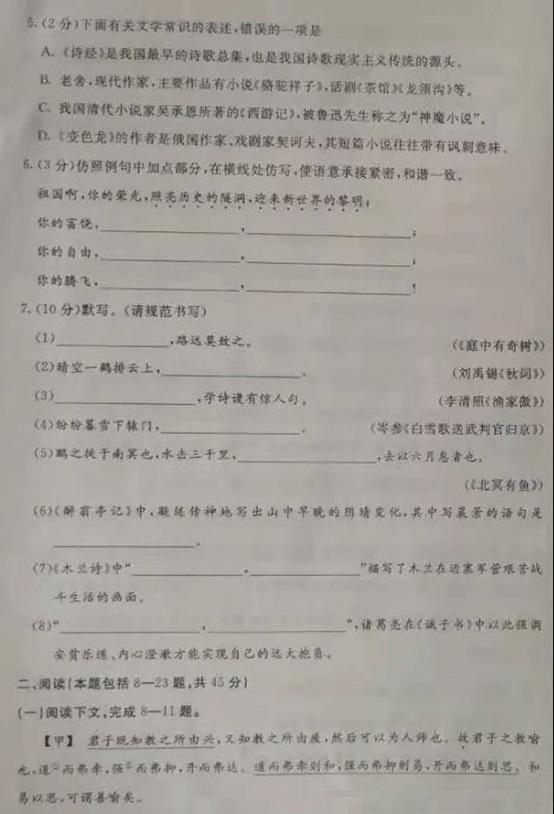 5.(2分)下面有关文学常识的表述,错误的一项是
A.《诗经》是我国最早的诗歌总集,也是我国诗歌现实主义传统的源头。
B. 老舍,现代作家,主要作品有小说《骆驼祥子》,话剧《茶馆》《龙须沟》等。
C. 我国清代小说家吴承恩所著的《西游记》,被鲁迅先生称之为“神魔小说”。
D.《变色龙》的作者是俄国作家、戏剧家契诃夫,其短篇小说往往带有讽刺意味。
6.(3分)仿照例句中加点部分,在横线处仿写,使语意承接紧密,和谐一致。
祖国啊,你的荣光,照亮历史的隧洞,迎来新世界的黎明;
你的富饶,____________,____________;
你的自由,____________,____________;
你的腾飞,____________,____________!
7.(10分)默写。(请规范书写)
(1)____________,路远莫致之。 (《庭中有奇树》)
(2)晴空一鹤排云上,____________。 (刘禹锡《秋词》)
(3)____________,学诗谩有惊人句。 (李清照《渔家傲》)
(4)纷纷暮雪下辕门,____________。 (岑参《白雪歌送武判官归京》)
(5)鹏之徙于南冥也,水击三千里,____________,去以六月息者也。
(《北冥有鱼》)
(6)《醉翁亭记》中,凝练传神地写出山中早晚的阴晴变化,其中写晨景的语句是
____________。
(7)《木兰诗》中“____________,____________”描写了木兰在边塞军营艰苦战
斗生活的画面。
(8)“____________,____________”,诸葛亮在《诫子书》中以此强调
安贫乐道、内心澄澈才能实现自己的远大抱负。
二、阅读(本题包括8—23题,共45分)
(一)阅读下文,完成8—11题。
【甲】 君子既知教之所由兴,又知教之所由废,然后可以为人师也。故君子之教喻
也,道①而弗牵,强②而弗抑,开而弗达。道而弗牵则和,强而弗抑则易,开而弗达则思。和
易以思,可谓善喻矣。